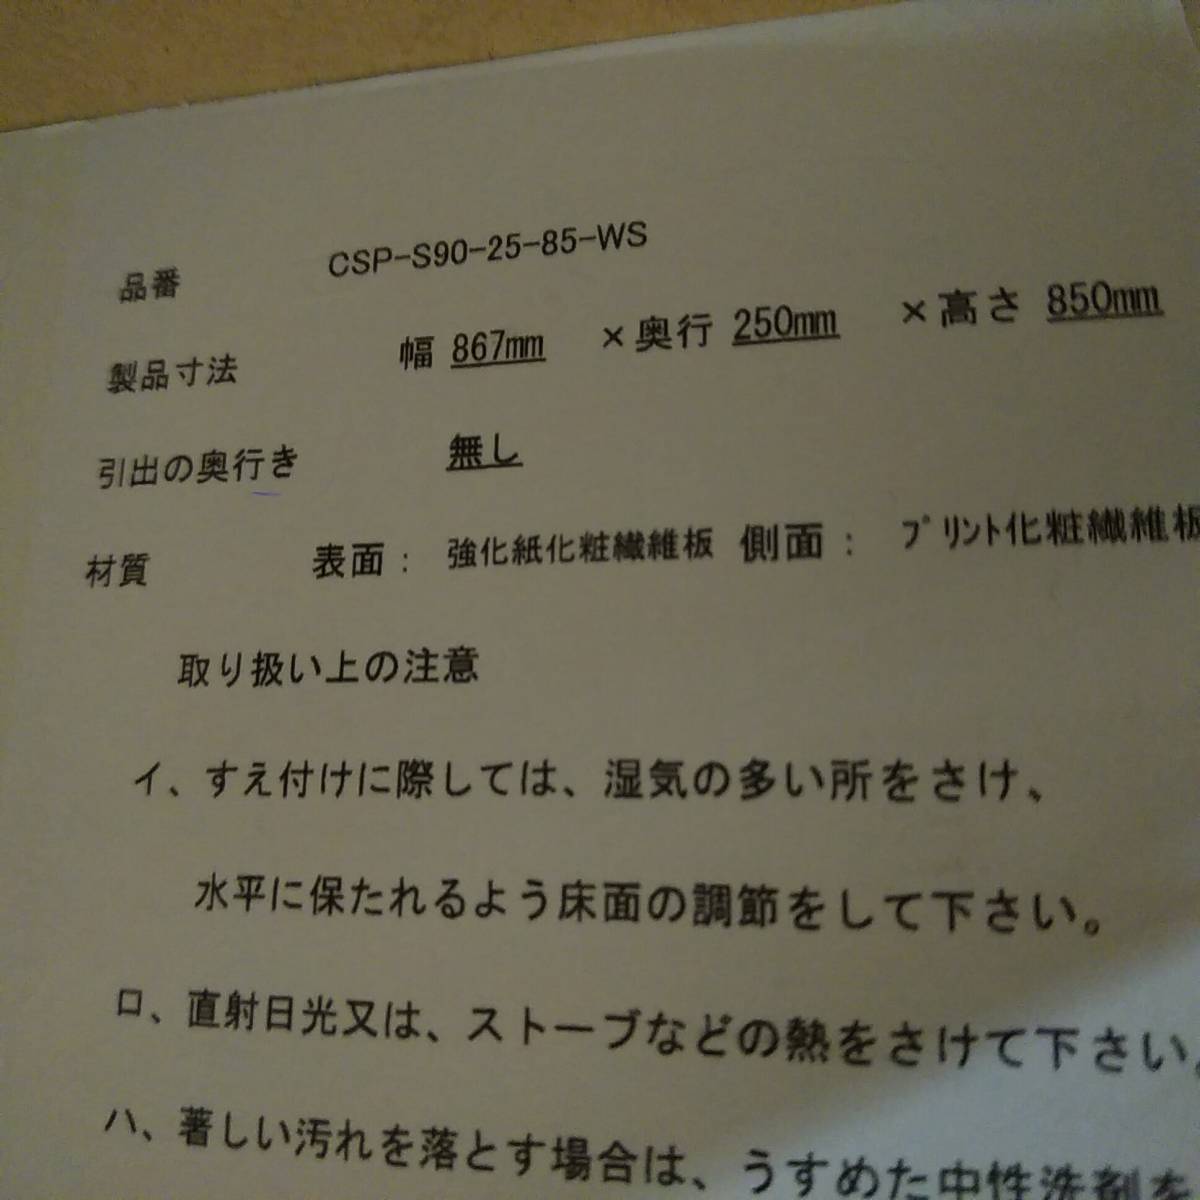 品番 CSP-S90-25-85-WS
製品寸法 幅 867mm ×奥行 250mm ×高さ 850mm
引出の奥行き 無し
材質 表面： 強化紙化粧繊維板 側面： プリント化粧繊維板
取り扱い上の注意
イ、すえ付けに際しては、湿気の多い所をさけ、
水平に保たれるよう床面の調節をして下さい。
ロ、直射日光又は、ストーブなどの熱をさけて下さい。
ハ、著しい汚れを落とす場合は、うすめた中性洗剤を